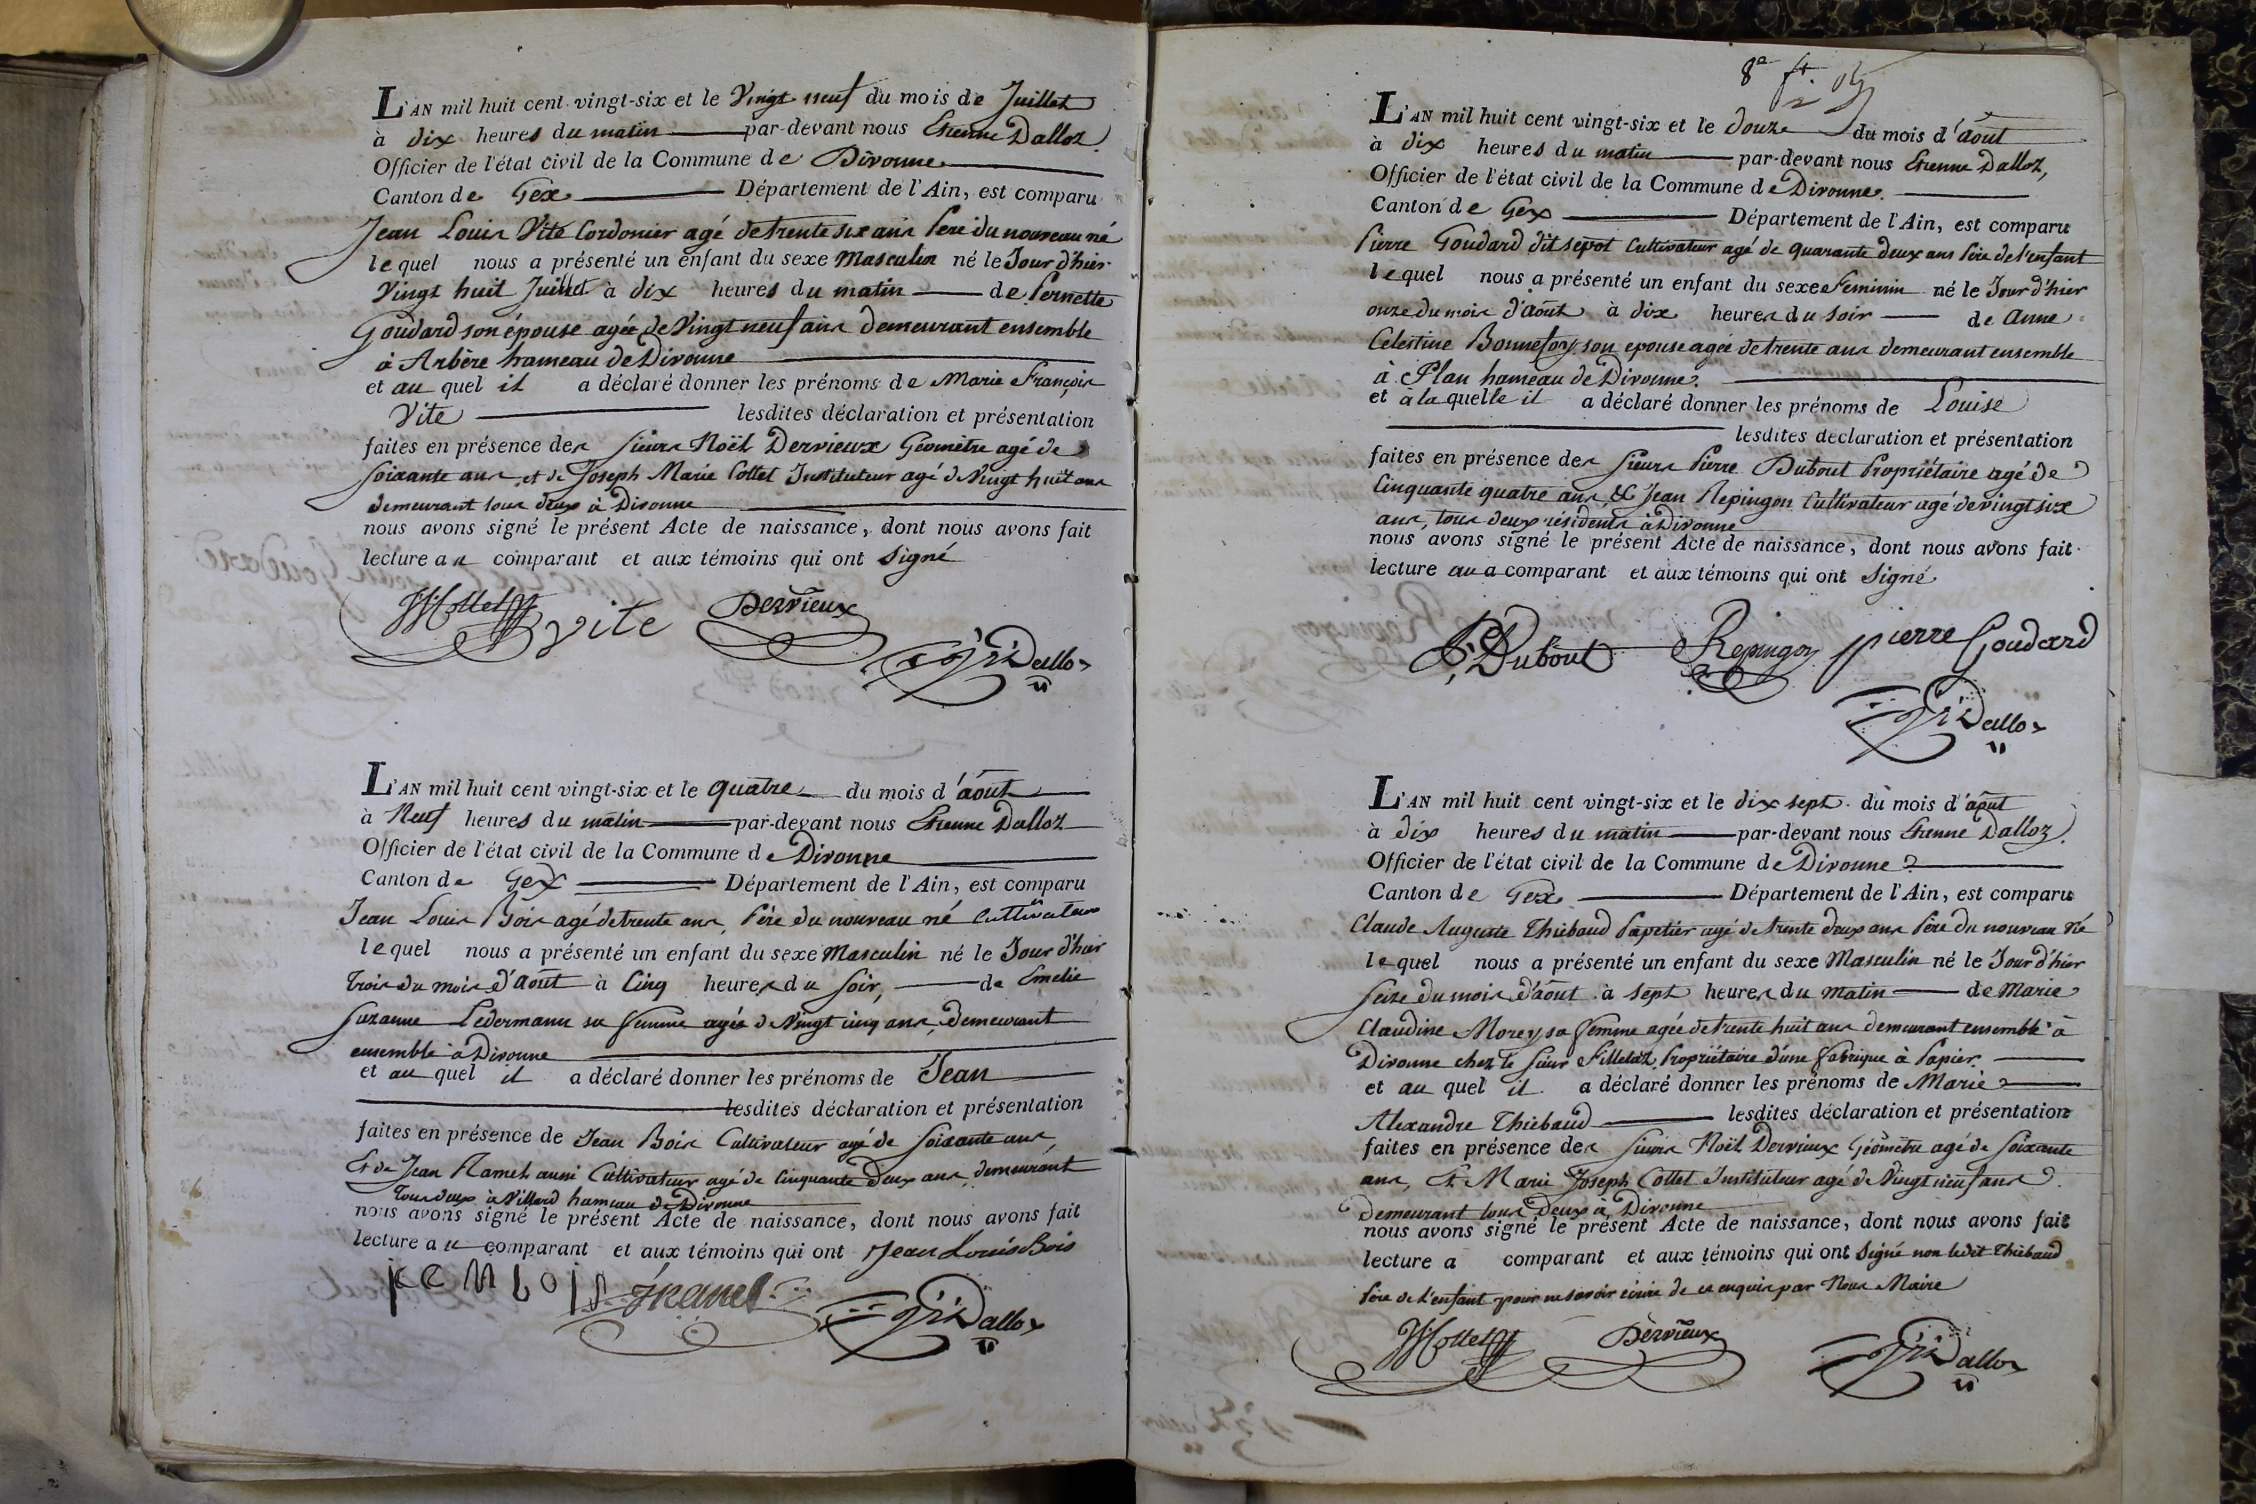 L'AN mil huit cent vingt-six et le Vingt neuf du mois de Juillet
à dix heures du matin par-devant nous Etienne Dalloz
Officier de l'état civil de la Commune de Divonne
Canton de Gex Département de l'Ain, est comparu
Jean Louis Vite Cordonier agé de trente six ans Père du nouveau né
lequel nous a présenté un enfant du sexe Masculin né le Jour d'hier
Vingt huit Juillet à dix heures du matin de Pernette
Goudard son épouse agée de Vingt neuf ans demeurant ensemble
à Arbère hameau de Divonne
et au quel il a déclaré donner les prénoms de Marie François
Vite lesdites déclaration et présentation
faites en présence des Sieurs Noël Dervieux Géomètre agé de
Soixante ans, et de Joseph Marie Collet Instituteur agé de Vingt huit ans
demeurant tous deux à Divonne
nous avons signé le présent Acte de naissance, dont nous avons fait
lecture au comparant et aux témoins qui ont Signé
Collet Vite Dervieux
Dalloz
L'AN mil huit cent vingt-six et le quatre du mois d'août
à Neuf heures du matin par-devant nous Etienne Dalloz
Officier de l'état civil de la Commune de Divonne
Canton de Gex Département de l'Ain, est comparu
Jean Louis Bois agé de trente ans, Père du nouveau né Cultivateur
lequel nous a présenté un enfant du sexe Masculin né le Jour d'hier
trois du mois d'août à Cinq heures du Soir, de Emelie
Suzanne Ledermann sa femme agée de Vingt cinq ans, demeurant
ensemble à Divonne
et au quel il a déclaré donner les prénoms de Jean
lesdites déclaration et présentation
faites en présence de Jean Bois Cultivateur agé de Soixante ans,
Et de Jean Ramel aussi Cultivateur agé de Cinquante deux ans, demeurant
Tous deux à Villard hameau de Divonne
nous avons signé le présent Acte de naissance, dont nous avons fait
lecture au comparant et aux témoins qui ont Jean Louis Bois
Jramel
Dalloz
8e ft.
L'AN mil huit cent vingt-six et le douze du mois d'août
à dix heures du matin par-devant nous Etienne Dalloz,
Officier de l'état civil de la Commune de Divonne.
Canton de Gex Département de l'Ain, est comparu
Pierre Goudard dit sepot Cultivateur agé de quarante deux ans Père de l'enfant
lequel nous a présenté un enfant du sexe Feminin né le Jour d'hier
onze du mois d'août à dix heures du soir de Anne
Celestine Bonnefoy son epouse agée de trente ans demeurant ensemble
à Plan hameau de Divonne.
et à laquelle il a déclaré donner les prénoms de Louise
lesdites déclaration et présentation
faites en présence des Sieurs Pierre Dubout Propriétaire agé de
Cinquante quatre ans, & Jean Repingon Cultivateur agé de vingt six
ans, tous deux résidents à Divonne
nous avons signé le présent Acte de naissance, dont nous avons fait
lecture au comparant et aux témoins qui ont Signé
P. Dubout Repingon pierre Goudard
Dalloz
L'AN mil huit cent vingt-six et le dix sept du mois d'août
à dix heures du matin par-devant nous Etienne Dalloz
Officier de l'état civil de la Commune de Divonne
Canton de Gex Département de l'Ain, est comparu
Claude Auguste Thiebaud Papetier agé de trente deux ans Père du nouveau Né
lequel nous a présenté un enfant du sexe Masculin né le Jour d'hier
Seize du mois d'août à sept heures du matin de Marie
Claudine Morey sa femme agée de trente huit ans demeurant ensemble à
Divonne chez le Sieur Filletaz Propriétaire d'une fabrique à Papier.
et au quel il a déclaré donner les prénoms de Marie
Alexandre Thiebaud lesdites déclaration et présentation
faites en présence des Sieurs Noël Dervieux Géomètre agé de Soixante
ans, Et Marie Joseph Collet Instituteur agé de Vingt neuf ans
demeurant tous deux à Divonne
nous avons signé le présent Acte de naissance, dont nous avons fait
lecture a comparant et aux témoins qui ont Signé non ledit Thiebaud
Père de l'enfant pour ne savoir écrire de ce enquis par Nous Maire
Collet Dervieux
Dalloz